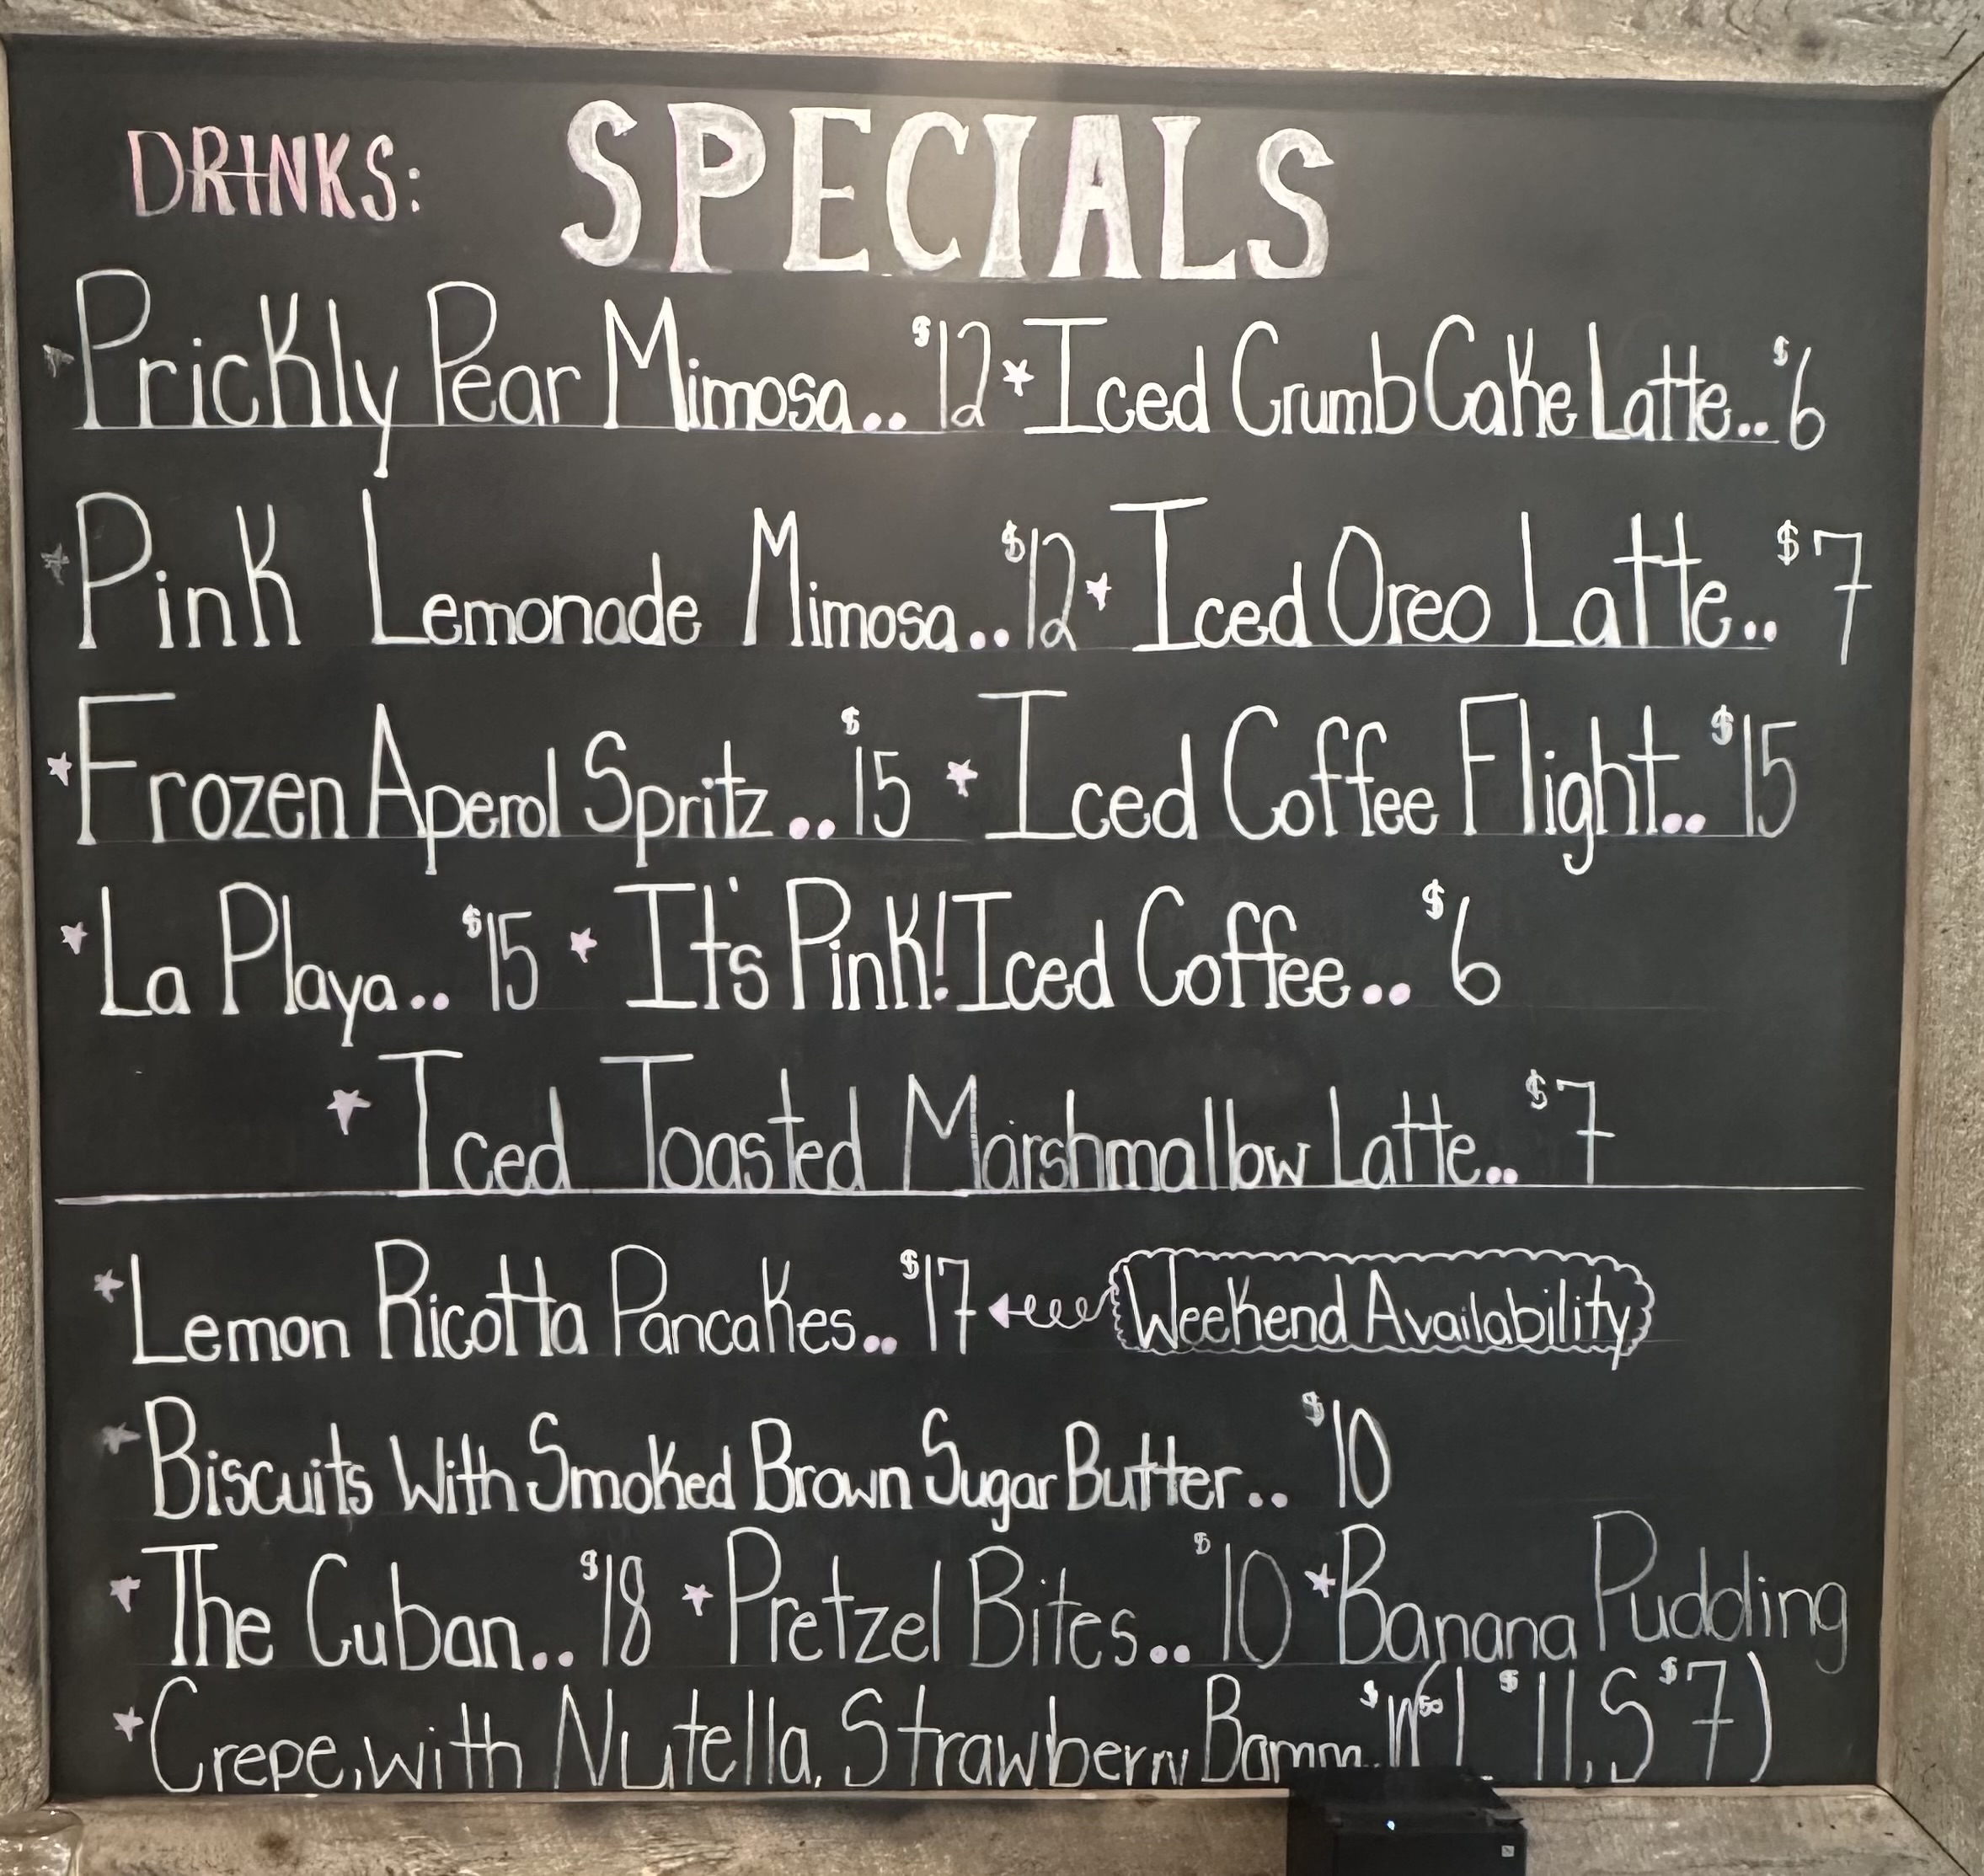 DRINKS: SPECIALS
Prickly Pear Mimosa.. $12 Iced Crumb Cake Latte.. $6
Pink Lemonade Mimosa.. $12 Iced Oreo Latte.. $7
Frozen Aperol Spritz.. $15 Iced Coffee Flight.. $15
La Playa.. $15 It's Pink! Iced Coffee.. $6
Iced Toasted Marshmallow Latte.. $7
Lemon Ricotta Pancakes.. $17 Weekend Availability
Biscuits With Smoked Brown Sugar Butter.. $10
The Cuban.. $18 Pretzel Bites.. $10 Banana Pudding
Crepe, with Nutella, Strawberry $11, S $7)